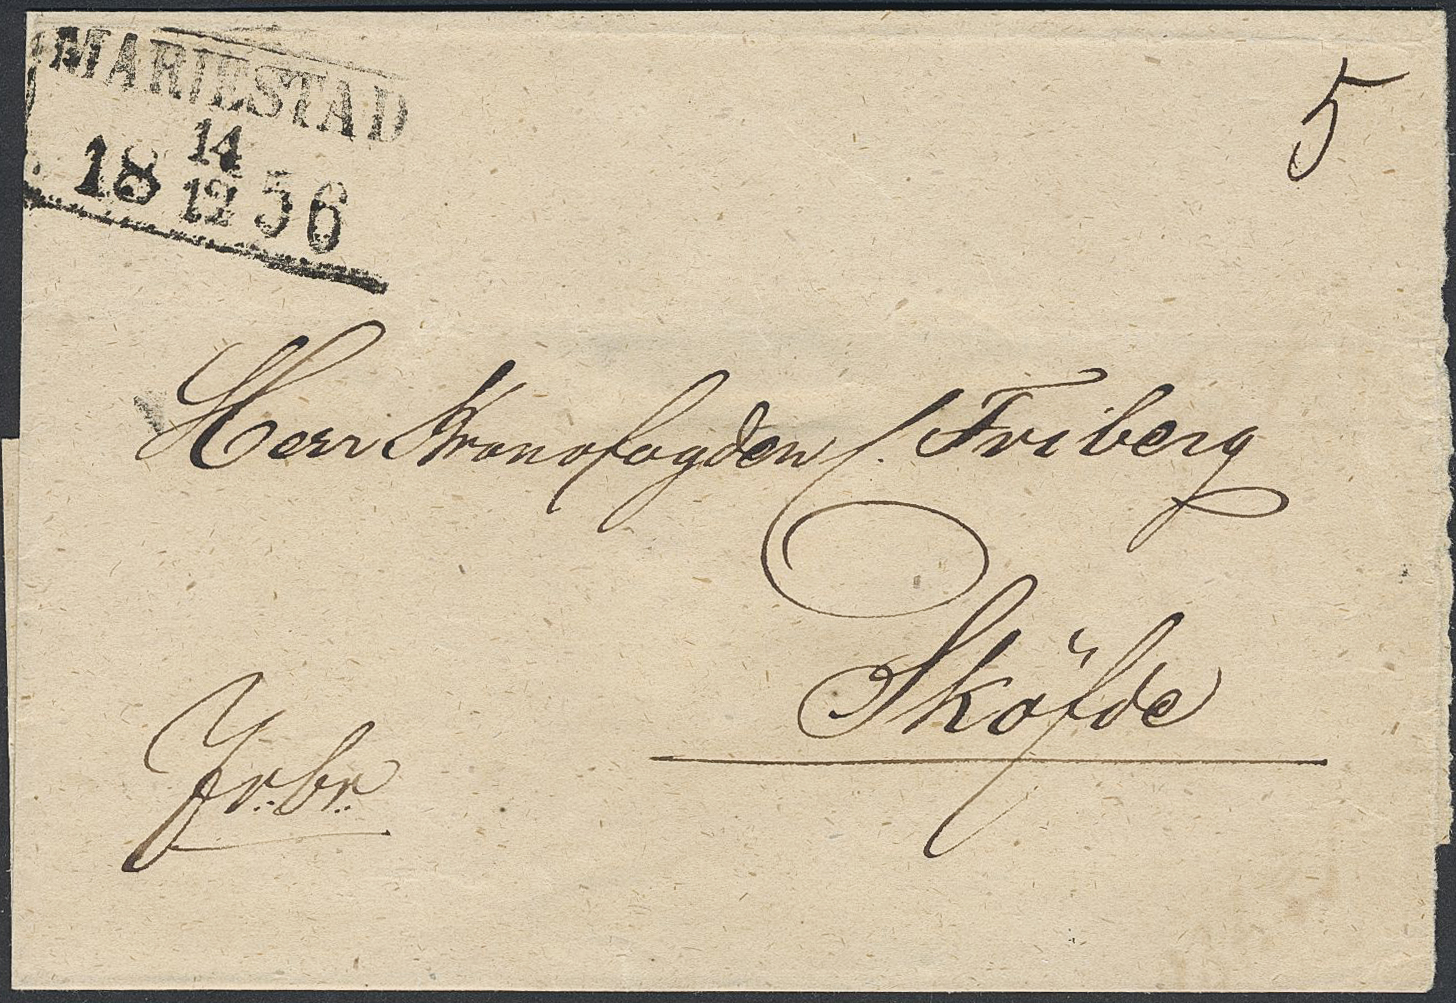 MARIESTAD
18 14/12 56
5
Herr Kronofogden f. Friberg
Sköfde
fr:br: